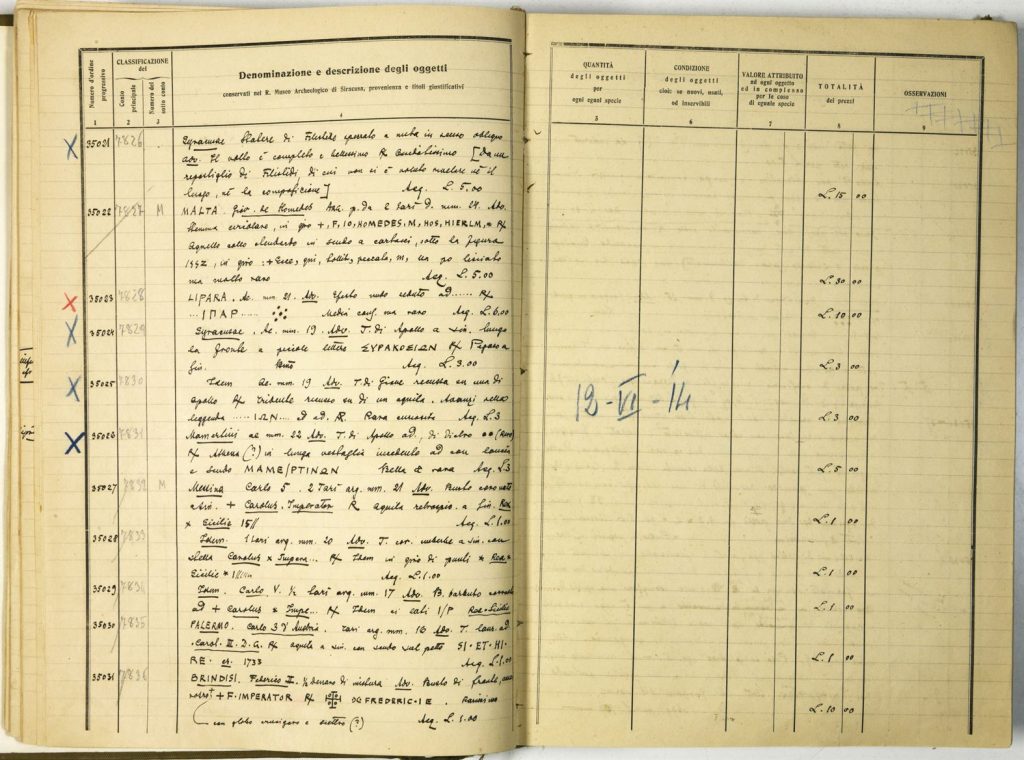 Numero d'ordine progressivo
CLASSIFICAZIONE del
Conto principale
Numero del sotto conto
Denominazione e descrizione degli oggetti
conservati nel R. Museo Archeologico di Siracusa, provenienza e titoli giustificativi
1 2 3 4
35021 7826 Syracusae Statere di Filistide in senso obliquo
adv. Il volto è completo e bellissimo R/ [da un
ripostiglio di Filistidi, di cui non si è voluto nè il
luogo, nè la composizione] Acq. L. 5.00
35022 7827 M MALTA. Giov. de Homedes Arg. p. da 2 Tarì d. mm. 27. Adv.
Stemma circolare, in giro +, F, IO, HOMEDES, M, HOS, HIERLM, R/
Agnello collo stendardo in scudo a cartocci, sotto la figura
1552, in giro: + Ecce, qui, tollit, peccata, m, un po lisciato
ma molto raro Acq. L. 5.00
35023 7828 LIPARA. Ae. mm. 21. Adv. Efesto nudo seduto ad...... R/
.... ΙΠΑΡ ...... Medio conf. ma raro Acq. L. 6.00
35024 7829 Syracusae. Ae. mm. 19. Adv. T. di Apollo a sin. lungo
la fronte a piccole lettere ΣΥΡΑΚΟΣΙΩΝ R/ Pegaso a
sin. Acq. L. 3.00
35025 7830 Idem Ae. mm. 19 Adv. T. di Giove recussa su una di
Apollo R/ tridente recusso su di un aquila. Avanzi nella
leggenda ..... ΙΩΝ .... Rara curiosità Acq. L. 3
35026 7831 Mamertini ae mm. 22 Adv. T. di Apollo ad., di dietro
R/ Athena (?) in lunga vestaglia incedente ad con lancia
e scudo ΜΑΜΕ/ΡΤΙΝΩΝ Bella e rara Acq. L. 3
35027 7832 M Messina Carlo 5. 2 Tarì arg. mm. 21 Adv. Busto coronato
+ Carolus. Imperator R aquila retrospic. a sin. Rex
* Sicilie 15// Acq. L. 1.00
35028 7833 Idem. 1 Tarì arg. mm. 20 Adv. T. cor. a sin. con
stella Carolus * Impera... R/ Idem in giro di punti * Rex *
Sicilie * Acq. L. 1.00
35029 7834 Idem. Carlo V. ½ tarì arg. mm. 17 Adv. B. barbuto coronato
ad + Carolus * Impe... R/ Idem ai lati I/P Rex • Sicilie
35030 7835 PALERMO. Carlo 3 d'Austria. Tarì arg. mm. 16 Adv. T. laur. ad.
Carol. III. D. G. R/ aquila a sin. con scudo sul petto SI • ET • HI •
RE. 1733 Acq. L. 1.00
35031 7836 BRINDISI. Federico II. ½ denaro di mistura Adv. Busto di fronte,
+ F • IMPERATOR R/ FREDERIC • IE. Rarissimo
con globo crucigero e scettro (?) Acq. L. 1.00
QUANTITÀ degli oggetti per ogni egual specie
CONDIZIONE degli oggetti cioè: se nuovi, usati, od inservibili
VALORE ATTRIBUITO ad ogni oggetto ed in complesso per le cose di eguale specie
TOTALITÀ dei prezzi
OSSERVAZIONI
5 6 7 8
L. 15 00
L. 30 00
L. 10 00
L. 3 00
12 - VI - 14
L. 3 00
L. 5 00
L. 1 00
L. 1 00
L. 1 00
L. 1 00
L. 10 00